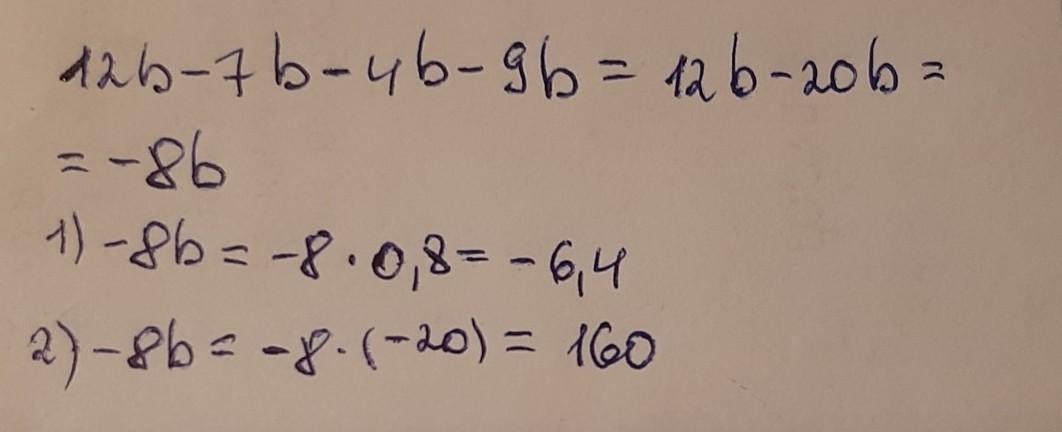 12b-7b-4b-9b = 12b-20b =
= -8b
1) -8b = -8 · 0,8 = -6,4
2) -8b = -8 · (-20) = 160